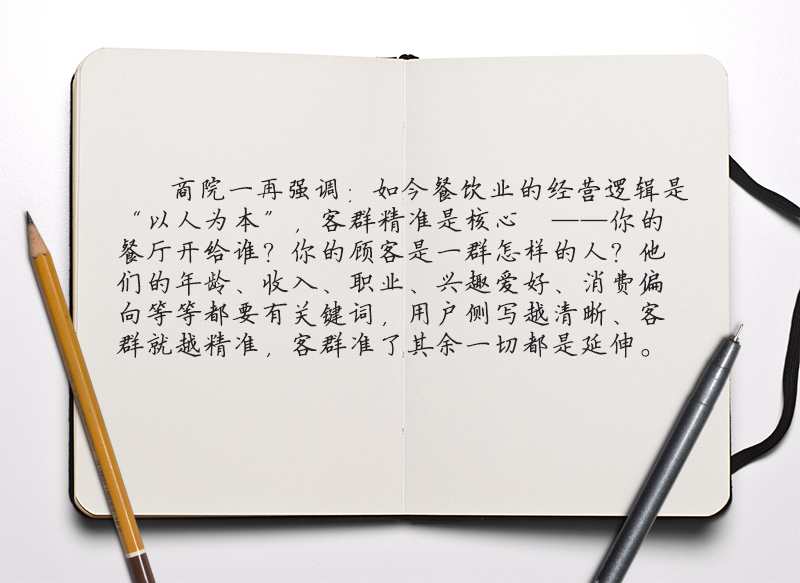 商院一再强调：如今餐饮业的经营逻辑是
“以人为本”，客群精准是核心 ——你的
餐厅开给谁？你的顾客是一群怎样的人？他
们的年龄、收入、职业、兴趣爱好、消费偏
向等等都要有关键词，用户侧写越清晰、客
群就越精准，客群准了其余一切都是延伸。